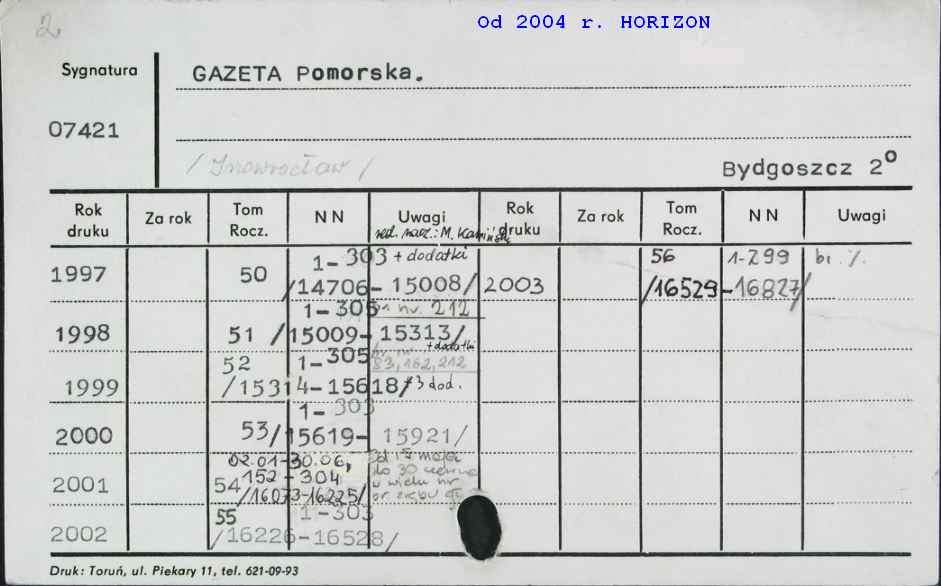 2
Od 2004 r. HORIZON
Sygnatura
GAZETA Pomorska.
07421
/ Inowrocław /
Bydgoszcz 2º
Rok druku
Za rok
Tom Rocz.
NN
Uwagi
Rok druku
Za rok
Tom Rocz.
NN
Uwagi
red. nacz.: M. Kamiński
1997 50 1-303 + dodatki
/14706-15008/
2003 56 1-299 bi. /.
/16529-16827/
1998 51 1-305 nr 212
/15009-15313/
+ dodatki
1999 52 1-305 83, 162, 212
/15314-15618/ +3 dod.
2000 53 1-303
/15619-15921/
2001 54 02.01-30.06,
152-304
/16073-16225/
Od 15 maja
do 30 czerwca
w wielu nr
2002 55 1-303
/16226-16528/
Druk: Toruń, ul. Piekary 11, tel. 621-09-93